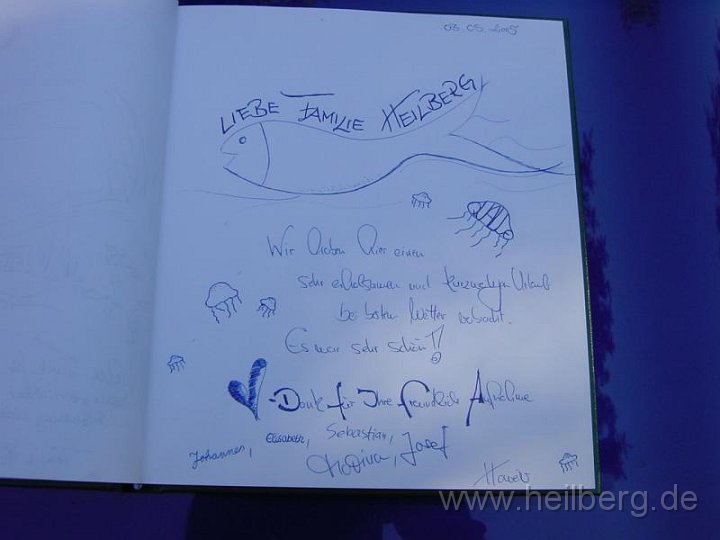 03.05.2005
LIEBE FAMILIE HEILBERG
Wir haben hier einen
sehr erholsamen und kurzweiligen Urlaub
bei bestem Wetter verbracht.
Es war sehr schön!
Dank für Ihre freundliche Aufnahme
Johannes, Elisabeth, Sebastian,
Josef
www.heilberg.de